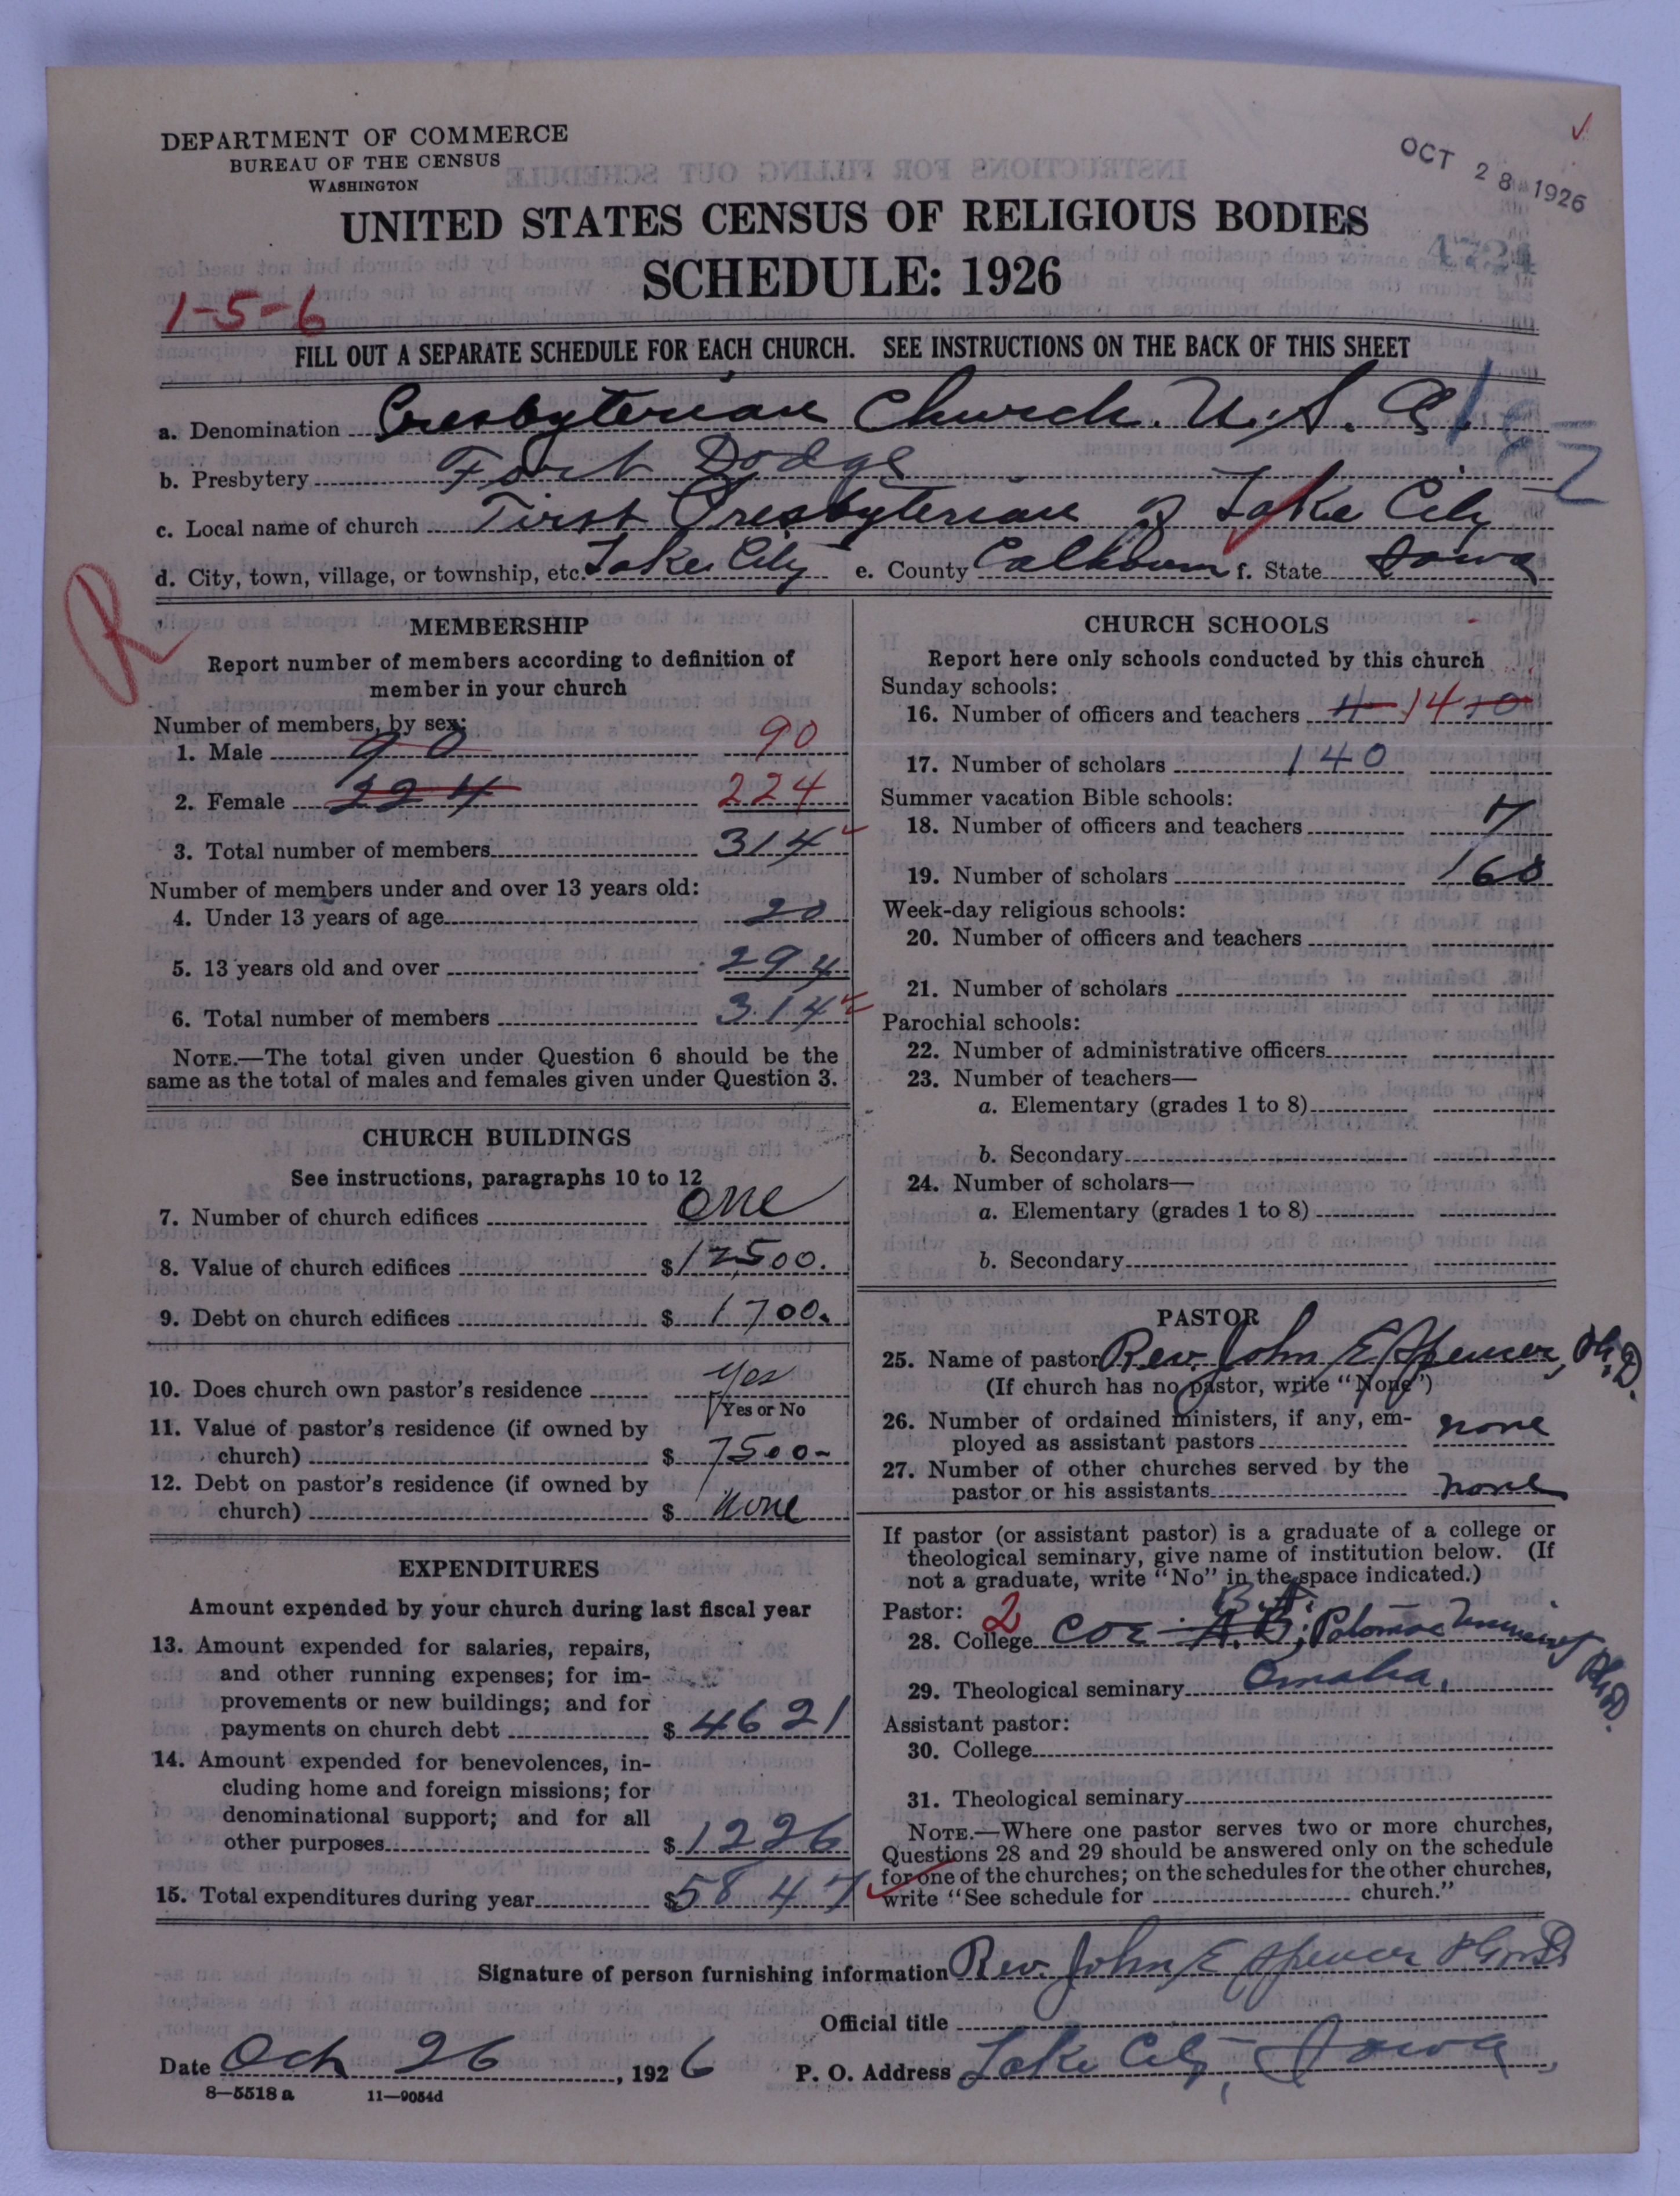 DEPARTMENT OF COMMERCE
BUREAU OF THE CENSUS
WASHINGTON
OCT 28 1926
UNITED STATES CENSUS OF RELIGIOUS BODIES
4724
SCHEDULE: 1926
1-5-6
FILL OUT A SEPARATE SCHEDULE FOR EACH CHURCH. SEE INSTRUCTIONS ON THE BACK OF THIS SHEET
a. Denomination Presbyterian Church. U. S. A.
b. Presbytery Fort Dodge
c. Local name of church First Presbyterian of Lake City
d. City, town, village, or township, etc. Lake City e. County Calhoun f. State Iowa
R
MEMBERSHIP
Report number of members according to definition of
member in your church
Number of members, by sex:
1. Male 90 90
2. Female 224 224
3. Total number of members 314
Number of members under and over 13 years old:
4. Under 13 years of age 20
5. 13 years old and over 294
6. Total number of members 314
NOTE.—The total given under Question 6 should be the
same as the total of males and females given under Question 3.
CHURCH BUILDINGS
See instructions, paragraphs 10 to 12
7. Number of church edifices one
8. Value of church edifices $ 12500.
9. Debt on church edifices $ 1700.
10. Does church own pastor's residence yes
Yes or No
11. Value of pastor's residence (if owned by
church) $ 7500-
12. Debt on pastor's residence (if owned by
church) $ none
EXPENDITURES
Amount expended by your church during last fiscal year
13. Amount expended for salaries, repairs,
and other running expenses; for im-
provements or new buildings; and for
payments on church debt $ 4621
14. Amount expended for benevolences, in-
cluding home and foreign missions; for
denominational support; and for all
other purposes $ 1226
15. Total expenditures during year $ 5847
CHURCH SCHOOLS
Report here only schools conducted by this church
Sunday schools:
16. Number of officers and teachers 4 14 10
17. Number of scholars 140
Summer vacation Bible schools:
18. Number of officers and teachers 7
19. Number of scholars 160
Week-day religious schools:
20. Number of officers and teachers
21. Number of scholars
Parochial schools:
22. Number of administrative officers
23. Number of teachers—
a. Elementary (grades 1 to 8)
b. Secondary
24. Number of scholars—
a. Elementary (grades 1 to 8)
b. Secondary
PASTOR
25. Name of pastor Rev. John E Spencer, Ph.D.
(If church has no pastor, write "None")
26. Number of ordained ministers, if any, em-
ployed as assistant pastors none
27. Number of other churches served by the
pastor or his assistants none
If pastor (or assistant pastor) is a graduate of a college or
theological seminary, give name of institution below. (If
not a graduate, write "No" in the space indicated.)
Pastor: 2 B.A.
28. College Coe A.B; Potomac University Ph.D.
29. Theological seminary Omaha.
Assistant pastor:
30. College
31. Theological seminary
NOTE.—Where one pastor serves two or more churches,
Questions 28 and 29 should be answered only on the schedule
for one of the churches; on the schedules for the other churches,
write "See schedule for church."
Signature of person furnishing information Rev. John E Spencer
Official title
Date Oct 26, 1926 P. O. Address Lake City, Iowa
8—5518 a 11—9054d